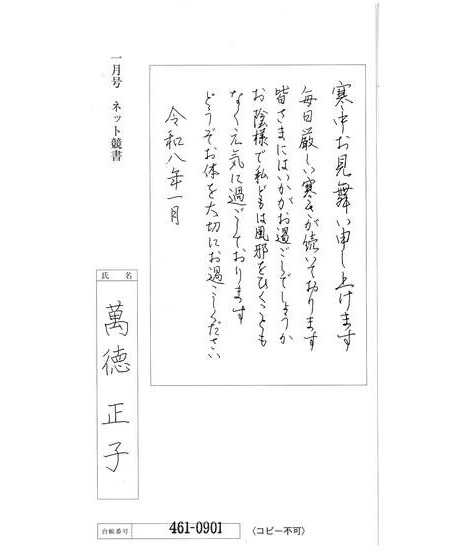 寒中お見舞い申し上げます
毎日厳しい寒さが続いております
皆さまにはいかがお過ごしでしょうか
お陰様で私どもは風邪をひくことも
なく元気に過ごしております
どうぞお体を大切にお過ごしください
令和八年一月
一月号 ネット競書
氏名
萬徳正子
台帳番号
461-0901
〈コピー不可〉